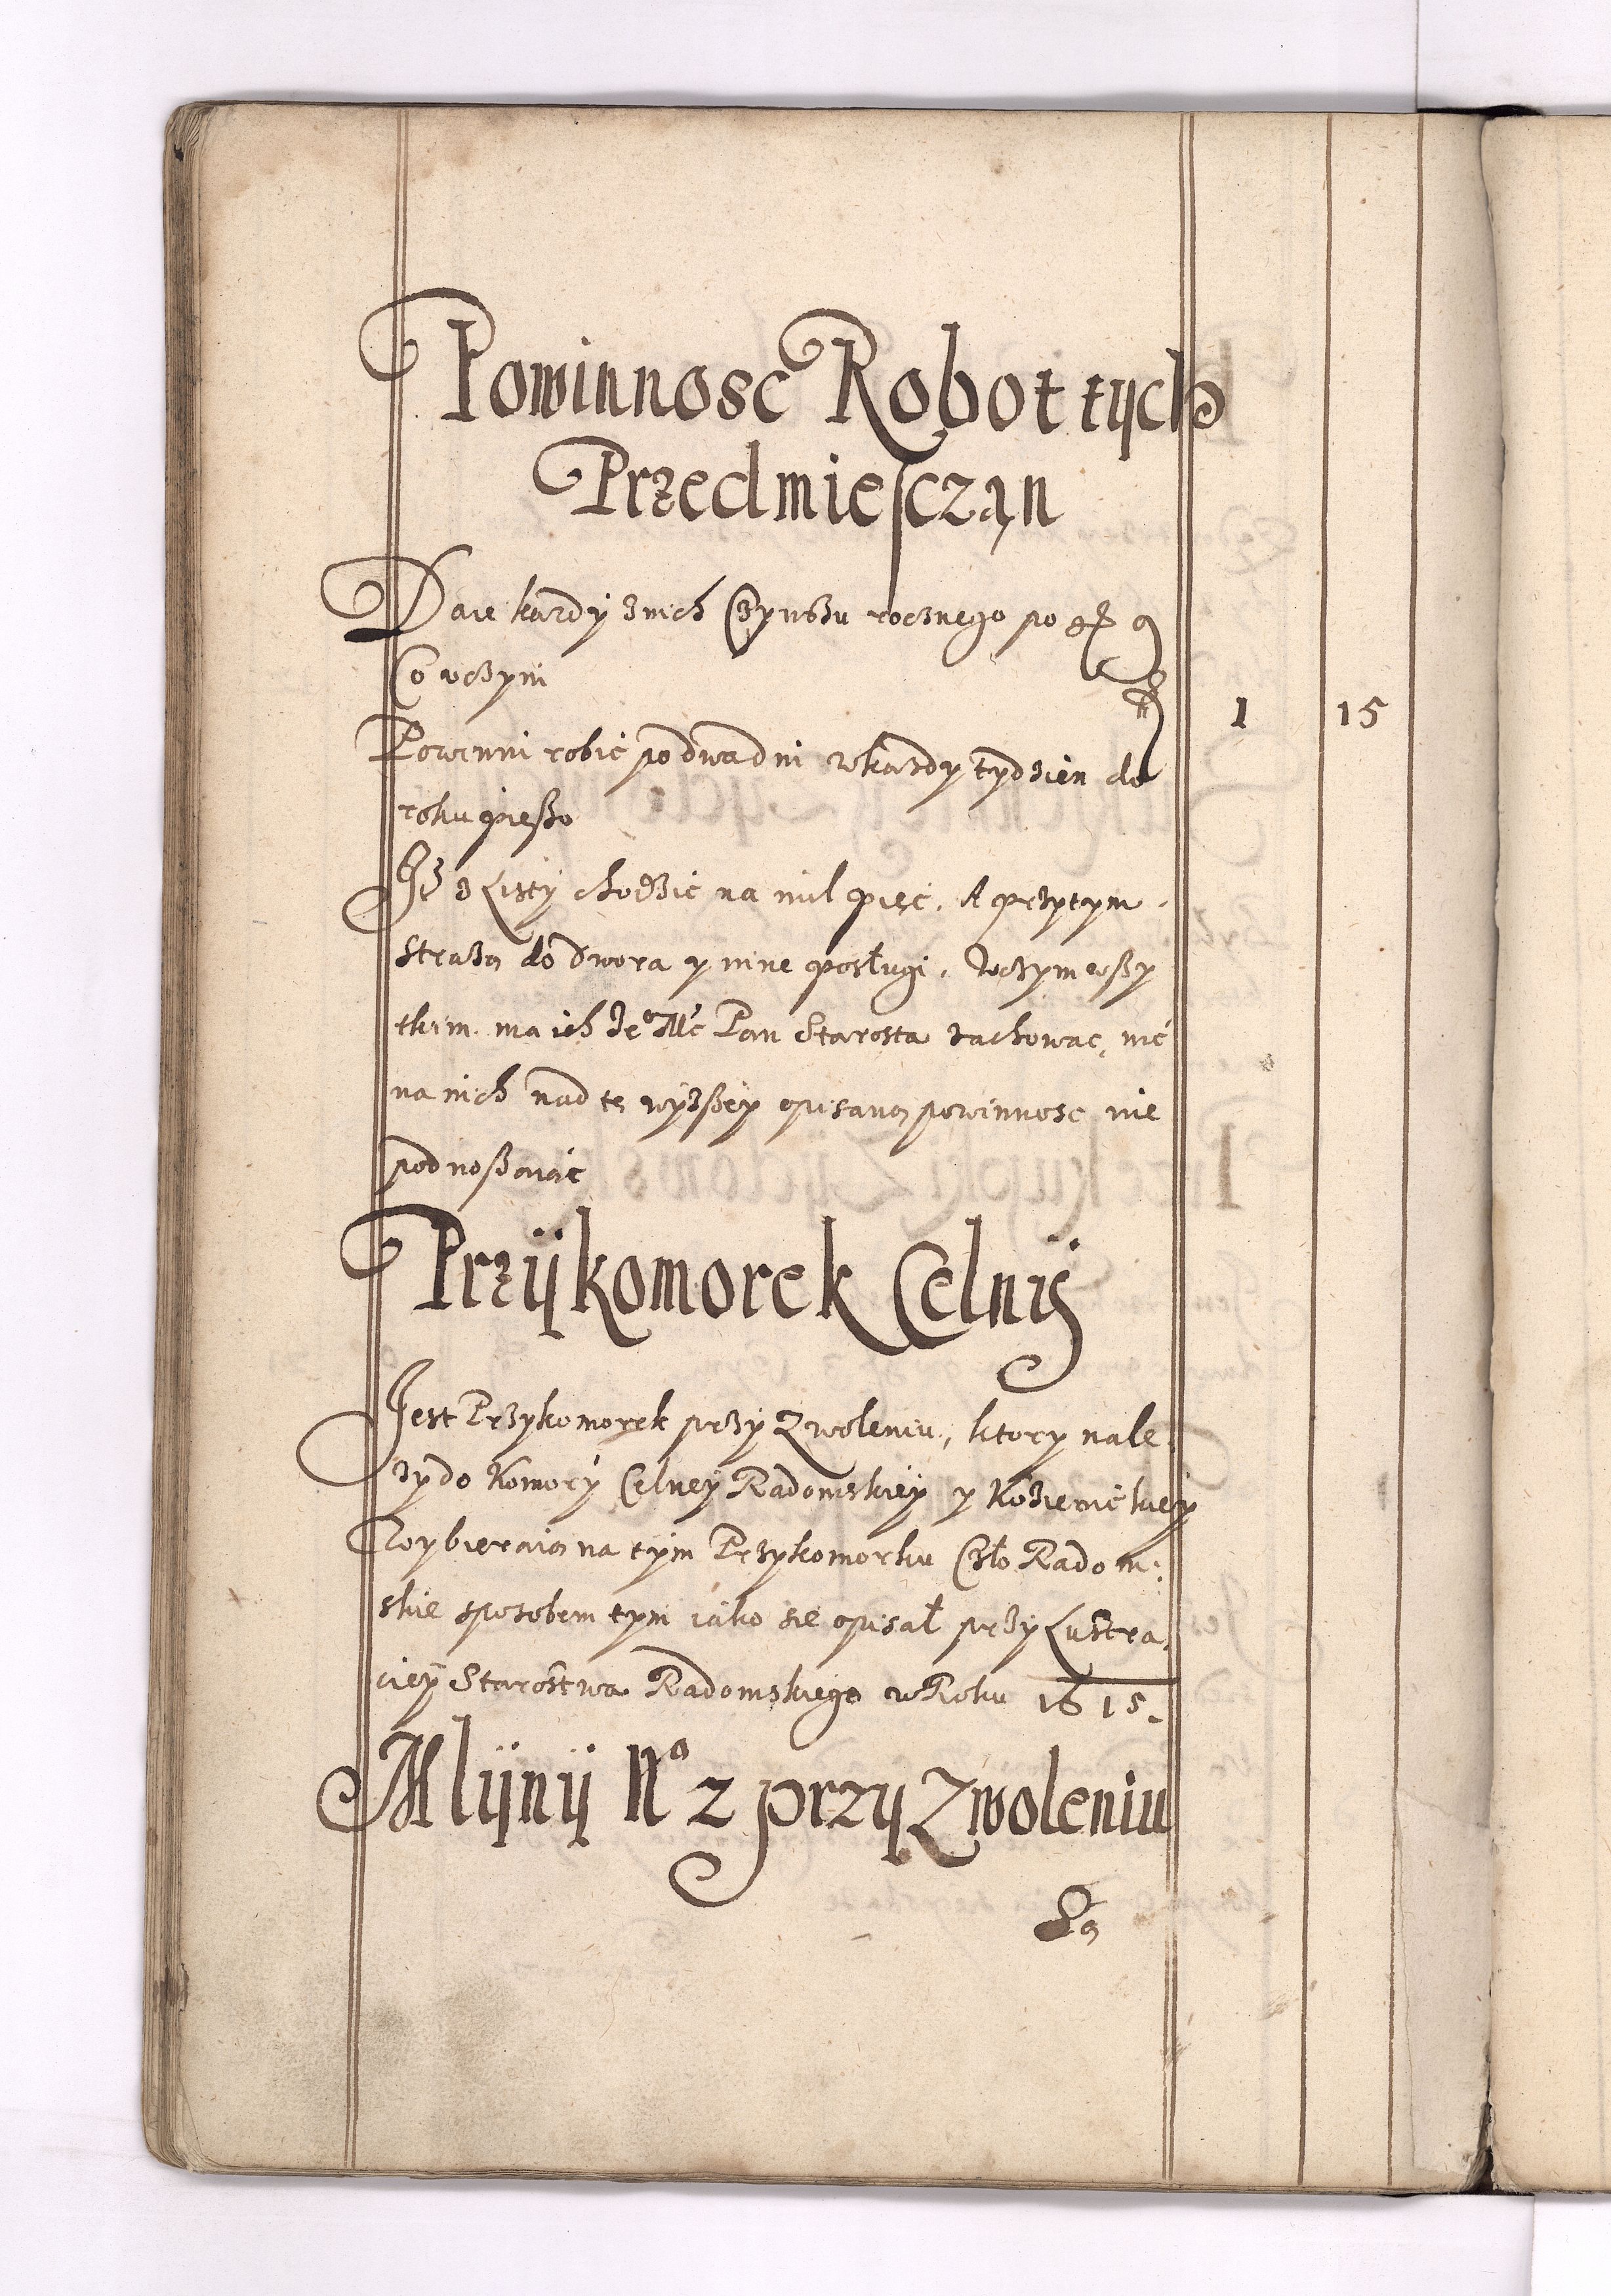 Powinnosc Robot tych
Przedmiesczan
Daie kazdy znich Czynszu rocznego po gr 9
Co uczyni f 1 15
Powinni robic po dwa dni w kazdy tydzien do
roku pieszo
Isz z Listy chodzic na mil pięc, A przytym
Strasza do dwora y inne posługi, Wczym wszy
tkim ma ich Je⁰ Mc Pan Starosta zachowac, nic
na nich nad tę wyzszey opisaną powinnosc nie
podnoszaiąc
Przykomorek Celny
Jest Przykomorek przy Zwoleniu, ktory nale
zy do Komory Celney Radomskiey y Kozienickiey
Wybieraią na tym Przykomorku Czło Radom:
skie sposobem tym iako sie opisał przy Lustra
ciey Starostwa Radomskiego w Roku 1615.
Mlyny Nº 2 przy Zwoleniu
Są